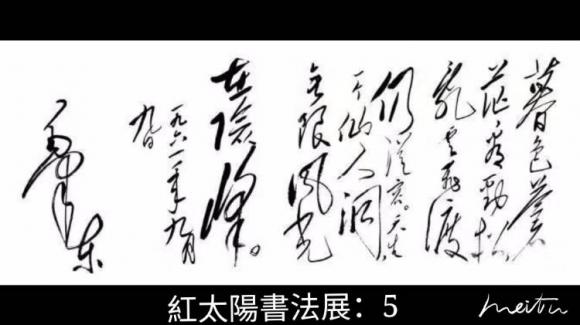 暮色蒼
茫看勁松
亂云飛渡
仍從容。天生
一个仙人洞
無限風光
在險峰。
一九六一年九月
九日
毛澤東
紅太陽書法展：5
meitu